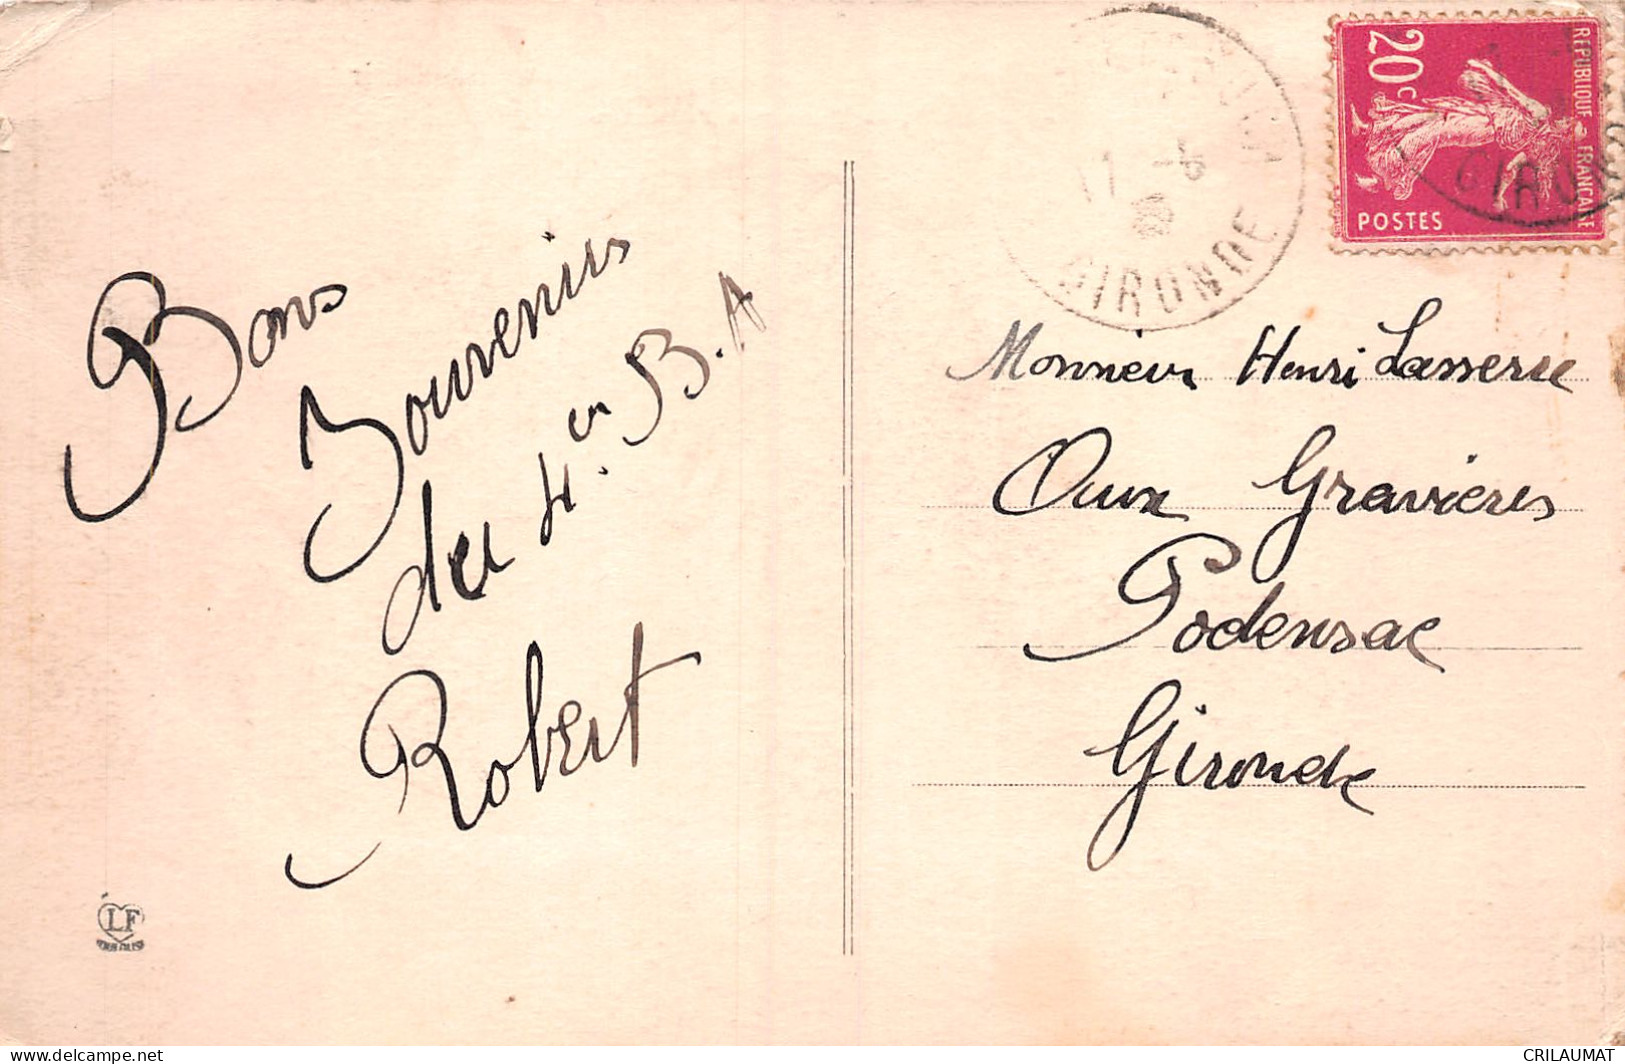 Bons
Souvenirs
du 4.er B.A
Robert
LF
20c
REPUBLIQUE FRANCAISE
POSTES
17 -6
GIRONDE
GIRON
Monsieur Henri Lasserre
Aux Gravières
Podensac
Gironde
www.delcampe.net
CRILAUMAT